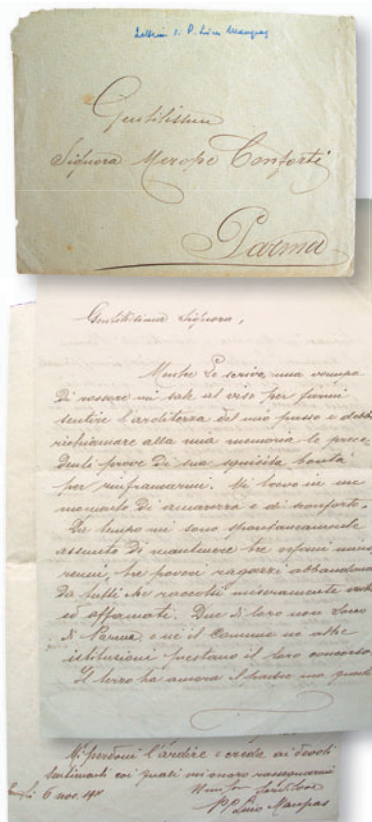 Lettera di P. Lino Maupas
Gentilissima
Signora Merope Conforti
Parma
Gentilissima Signora,
Mentre Le scrivo una vampa
di rossore mi sale al viso per farmi
sentire l'arditezza del mio passo e debbo
richiamare alla mia memoria le prece-
denti prove di sua squisita bontà
per rinfrancarmi. Mi trovo in un
momento di amarezza e di sconforto.
Da tempo mi sono spontaneamente
assunto di mantenere tre orfani mino-
renni, tre poveri ragazzi abbandonati
da tutti che raccolsi miseramente
ed affamati. Due di loro non sono
di Parma e nè il Comune nè altre
istituzioni prestano il loro concorso.
Il terzo ha ancora il padre ma
Mi perdoni l'ardire e creda ai devoti
sentimenti coi quali mi onoro rassegnarmi
6 nov.
P. Lino Maupas